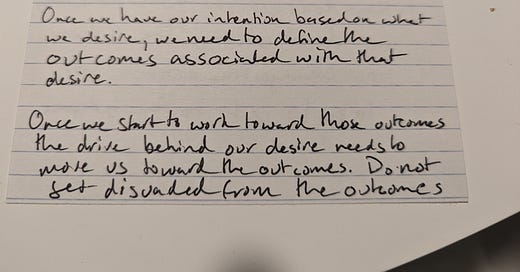 Once we have our intention based on what
we desire, we need to define the
outcomes associated with that
desire.
Once we start to work toward those outcomes
the drive behind our desire needs to
move us toward the outcomes. Do not
get disuaded from the outcomes